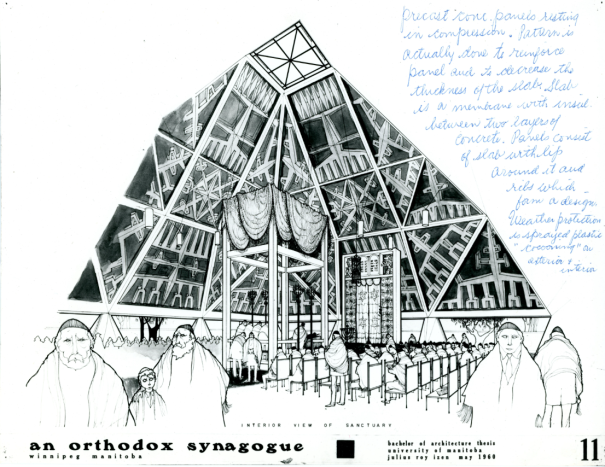 precast conc. panels resting
in compression. Pattern is
actually done to reinforce
panel and to decrease the
thickness of the slab. Slab
is a membrane with insul.
between two layers of
concrete. Panels consist
of slab with lip
around it and
ribs which
form a design.
Weather protection
is sprayed plastic
"cocooning" on
exterior &
interior
INTERIOR VIEW OF SANCTUARY
an orthodox synagogue
winnipeg manitoba
bachelor of architecture thesis
university of manitoba
julius ray may 1960
11